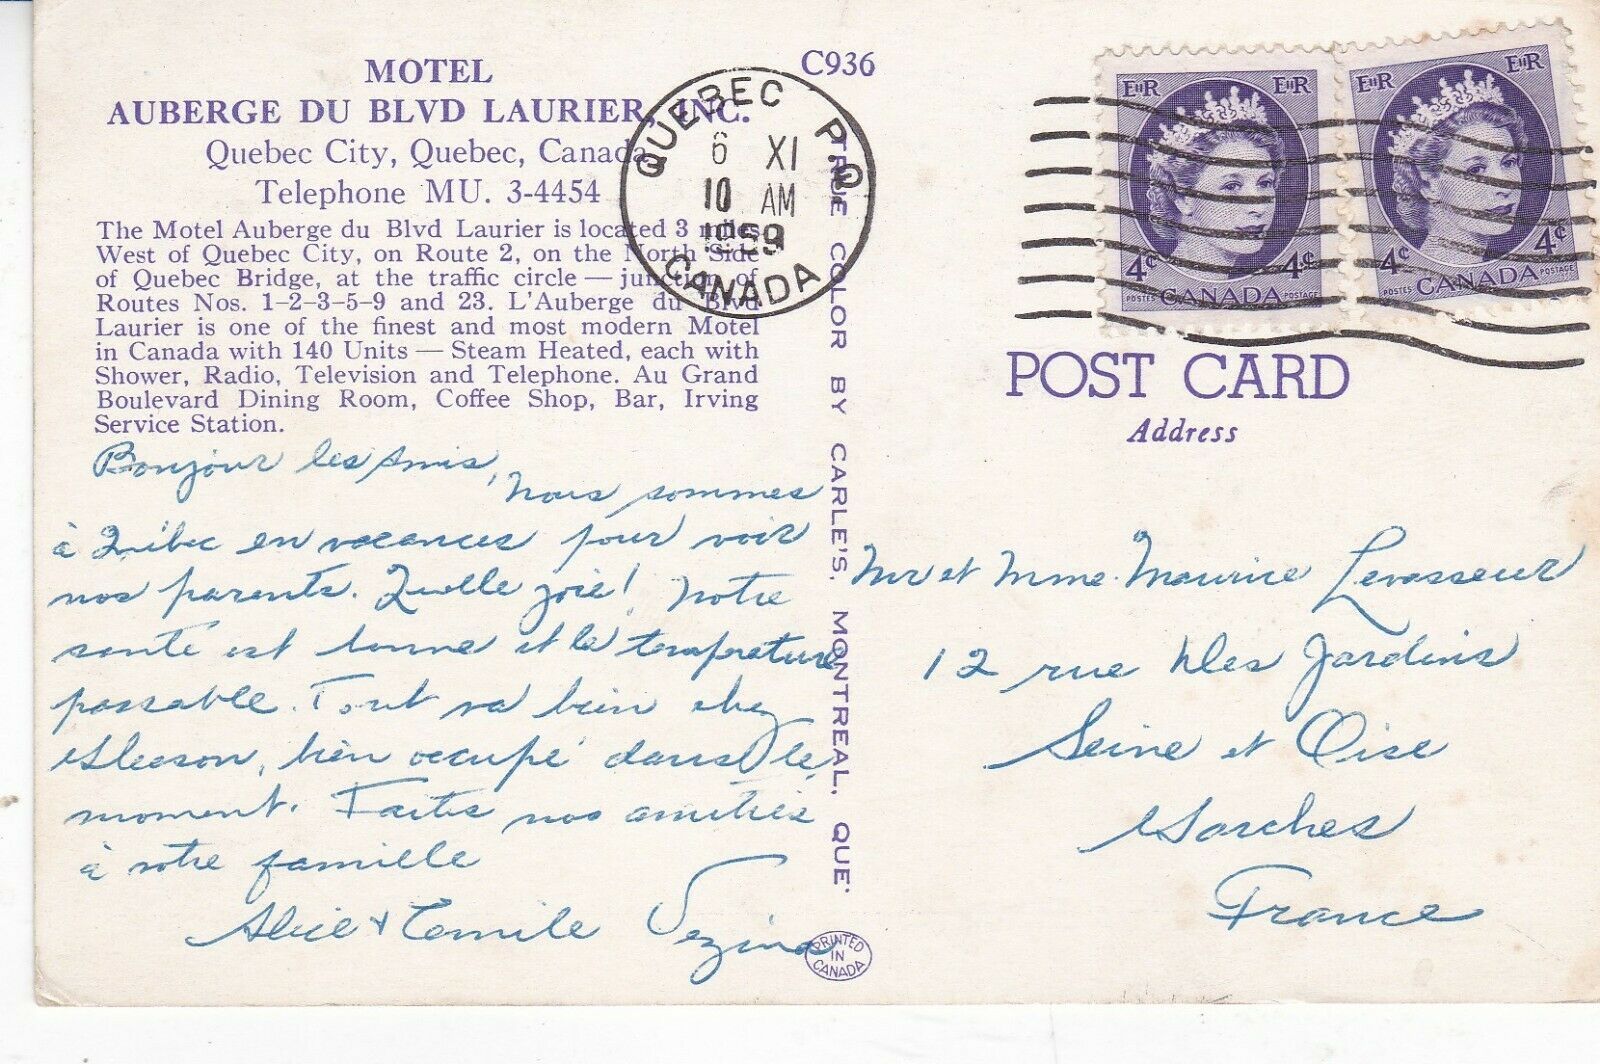 MOTEL
AUBERGE DU BLVD LAURIER, INC.
Quebec City, Quebec, Canada
Telephone MU. 3-4454
The Motel Auberge du Blvd Laurier is located 3 miles
West of Quebec City, on Route 2, on the North Side
of Quebec Bridge, at the traffic circle — junction of
Routes Nos. 1-2-3-5-9 and 23. L'Auberge du Blvd
Laurier is one of the finest and most modern Motel
in Canada with 140 Units — Steam Heated, each with
Shower, Radio, Television and Telephone. Au Grand
Boulevard Dining Room, Coffee Shop, Bar, Irving
Service Station.
Bonjour les Amis,
nous sommes
à Québec en vacances pour voir
nos parents. Quelle joie! Notre
santé est bonne et la temprature
passable. Tout va bien chez
Gleason, bien occupé dans le
moment. Faites nos amitiés
à votre famille
Alice & Camile Vezina
C936
TRUE COLOR BY CARLE'S, MONTREAL, QUE.
PRINTED
IN
CANADA
QUEBEC P.Q.
6 XI
10 AM
1959
CANADA
EIIR EIIR
4¢ 4¢
POSTES CANADA POSTAGE
EIIR EIIR
4¢ 4¢
POSTES CANADA POSTAGE
POST CARD
Address
Mr et Mme. Maurice Levasseur
12 rue Des Jardins
Seine et Oise
Garches
France